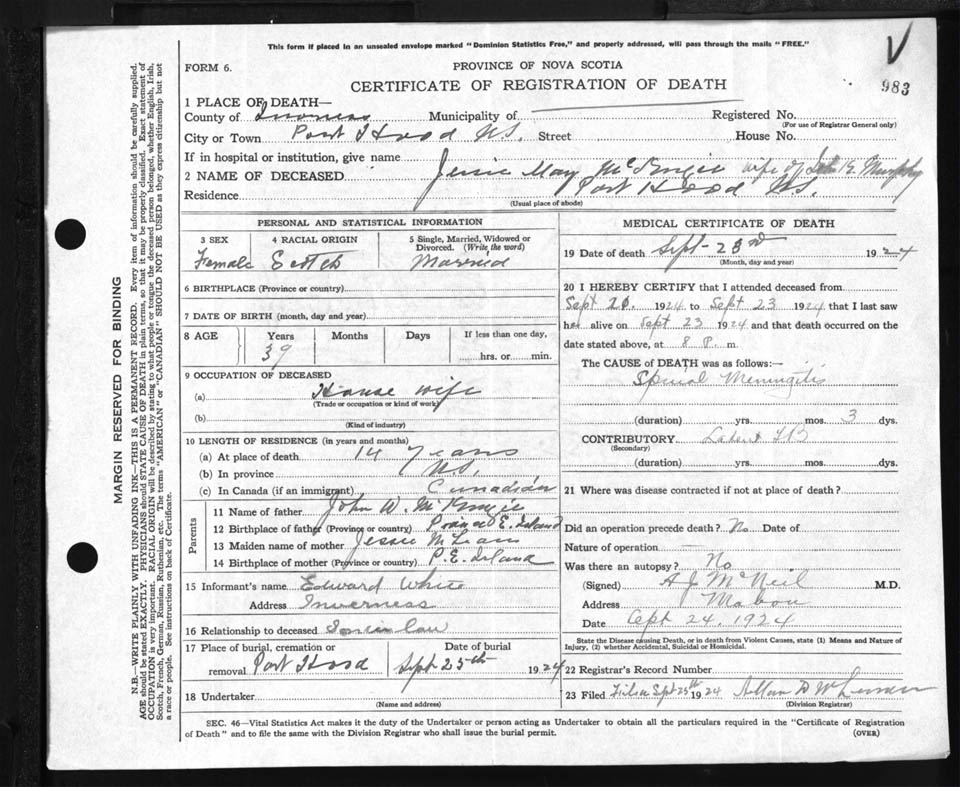 This form if placed in an unsealed envelope marked "Dominion Statistics Free," and properly addressed, will pass through the mails "FREE."
V
FORM 6.
PROVINCE OF NOVA SCOTIA
983
CERTIFICATE OF REGISTRATION OF DEATH
1 PLACE OF DEATH—
County of Inverness Municipality of Registered No.
(For use of Registrar General only)
City or Town Port Hood N.S. Street House No.
If in hospital or institution, give name
2 NAME OF DECEASED Jessie May wife of E. Murphy
Residence Port Hood N.S.
(Usual place of abode)
PERSONAL AND STATISTICAL INFORMATION
3 SEX 4 RACIAL ORIGIN 5 Single, Married, Widowed or Divorced. (Write the word)
Female Scotch Married
6 BIRTHPLACE (Province or country)
7 DATE OF BIRTH (month, day and year)
8 AGE Years Months Days If less than one day,
39 hrs. or min.
9 OCCUPATION OF DECEASED
(a) House wife
(Trade or occupation or kind of work)
(b)
(Kind of industry)
10 LENGTH OF RESIDENCE (in years and months)
(a) At place of death 14 years
(b) In province N.S.
(c) In Canada (if an immigrant) Canadian
Parents
11 Name of father John W.
12 Birthplace of father (Province or country) E. Island
13 Maiden name of mother Jessie McLean
14 Birthplace of mother (Province or country) P.E. Island
15 Informant's name Edward White
Address Inverness
16 Relationship to deceased Son in law
17 Place of burial, cremation or removal Date of burial
Port Hood Sept 25th 1924
18 Undertaker
(Name and address)
MEDICAL CERTIFICATE OF DEATH
19 Date of death Sept 23rd 1924
(Month, day and year)
20 I HEREBY CERTIFY that I attended deceased from
Sept 20. 1924 to Sept 23 1924 that I last saw
her alive on Sept 23 1924 and that death occurred on the
date stated above, at 8 P. m.
The CAUSE of DEATH was as follows:—
Spinal Meningitis
(duration) yrs. mos. 3 dys.
CONTRIBUTORY Latent TB
(Secondary)
(duration) yrs. mos. dys.
21 Where was disease contracted if not at place of death?
Did an operation precede death? No Date of
Nature of operation
Was there an autopsy? No
(Signed) A J McNeil M.D.
Address Mabou
Date Sept 24, 1924
State the Disease causing Death, or in death from Violent Causes, state (1) Means and Nature of
Injury, (2) whether Accidental, Suicidal or Homicidal.
22 Registrar's Record Number
23 Filed Sept 25th 1924 Allan
(Division Registrar)
SEC. 46—Vital Statistics Act makes it the duty of the Undertaker or person acting as Undertaker to obtain all the particulars required in the "Certificate of Registration
of Death" and to file the same with the Division Registrar who shall issue the burial permit.
(OVER)
MARGIN RESERVED FOR BINDING
N.B.—WRITE PLAINLY WITH UNFADING INK—THIS IS A PERMANENT RECORD. Every item of information should be carefully supplied.
AGE should be stated EXACTLY. PHYSICIANS should STATE CAUSE OF DEATH in plain terms, so that it may be properly classified. Exact statement of
OCCUPATION is very important. RACIAL ORIGIN will be described by stating to what people or tongue the deceased person belonged, whether English, Irish,
Scotch, French, German, Russian, Ruthenian, etc. The terms "AMERICAN" or "CANADIAN" SHOULD NOT BE USED as they express citizenship but not
a race or people. See instructions on back of Certificate.